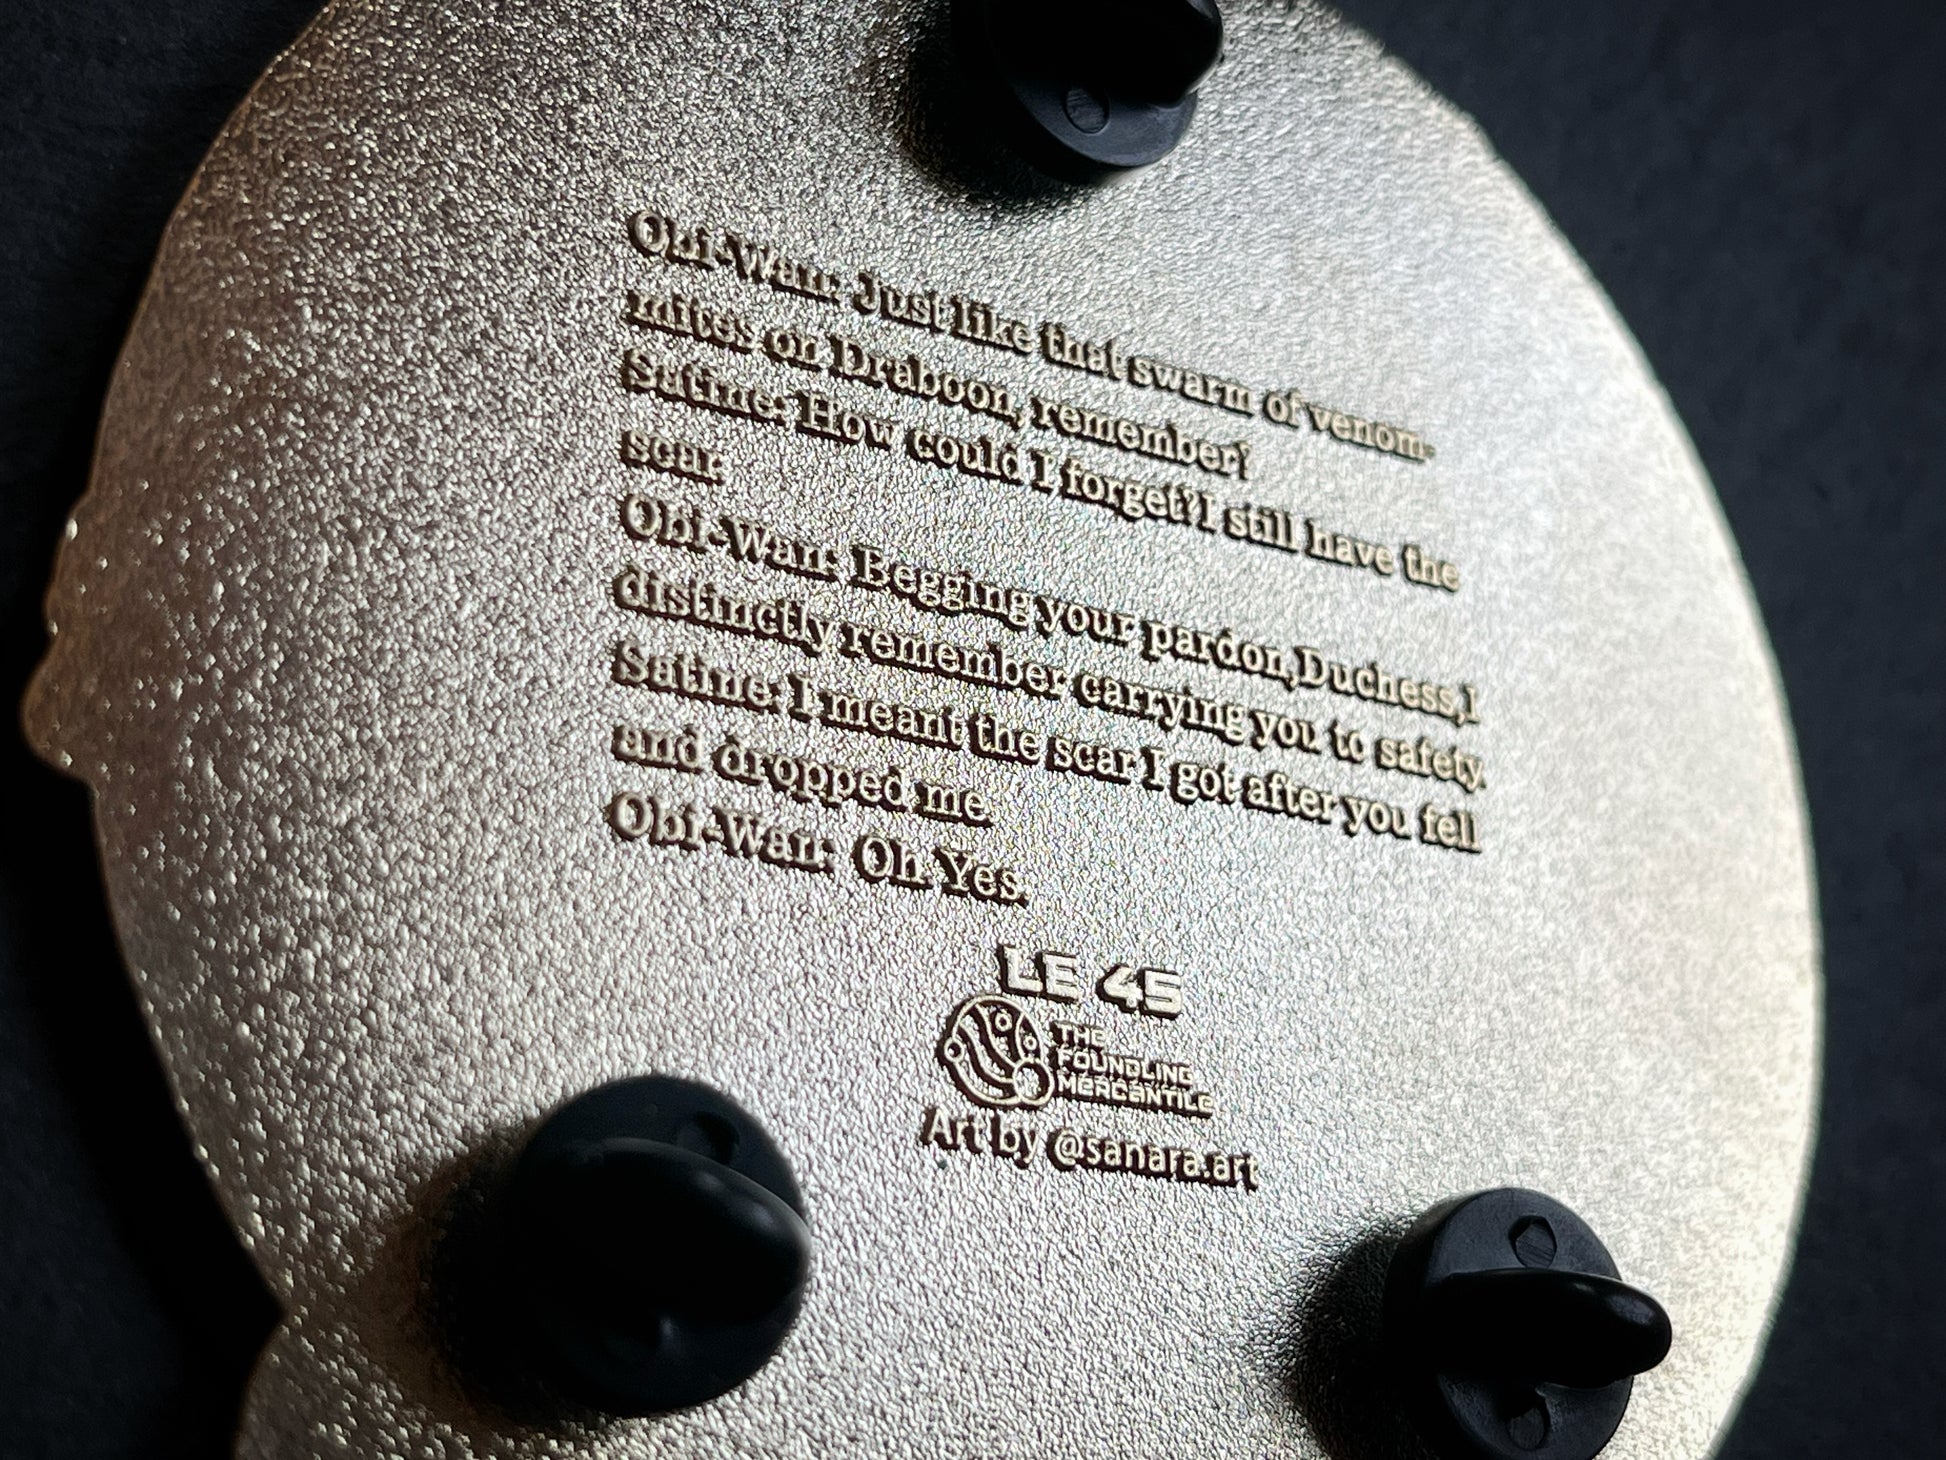 Obi-Wan: Just like that swarm of venom-
mites on Draboon, remember?
Satine: How could I forget? I still have the
scar.
Obi-Wan: Begging your pardon, Duchess, I
distinctly remember carrying you to safety.
Satine: I meant the scar I got after you fell
and dropped me.
Obi-Wan: Oh. Yes.
LE 45
THE
FOUNDLING
MERCANTILE
Art by @sanara.art